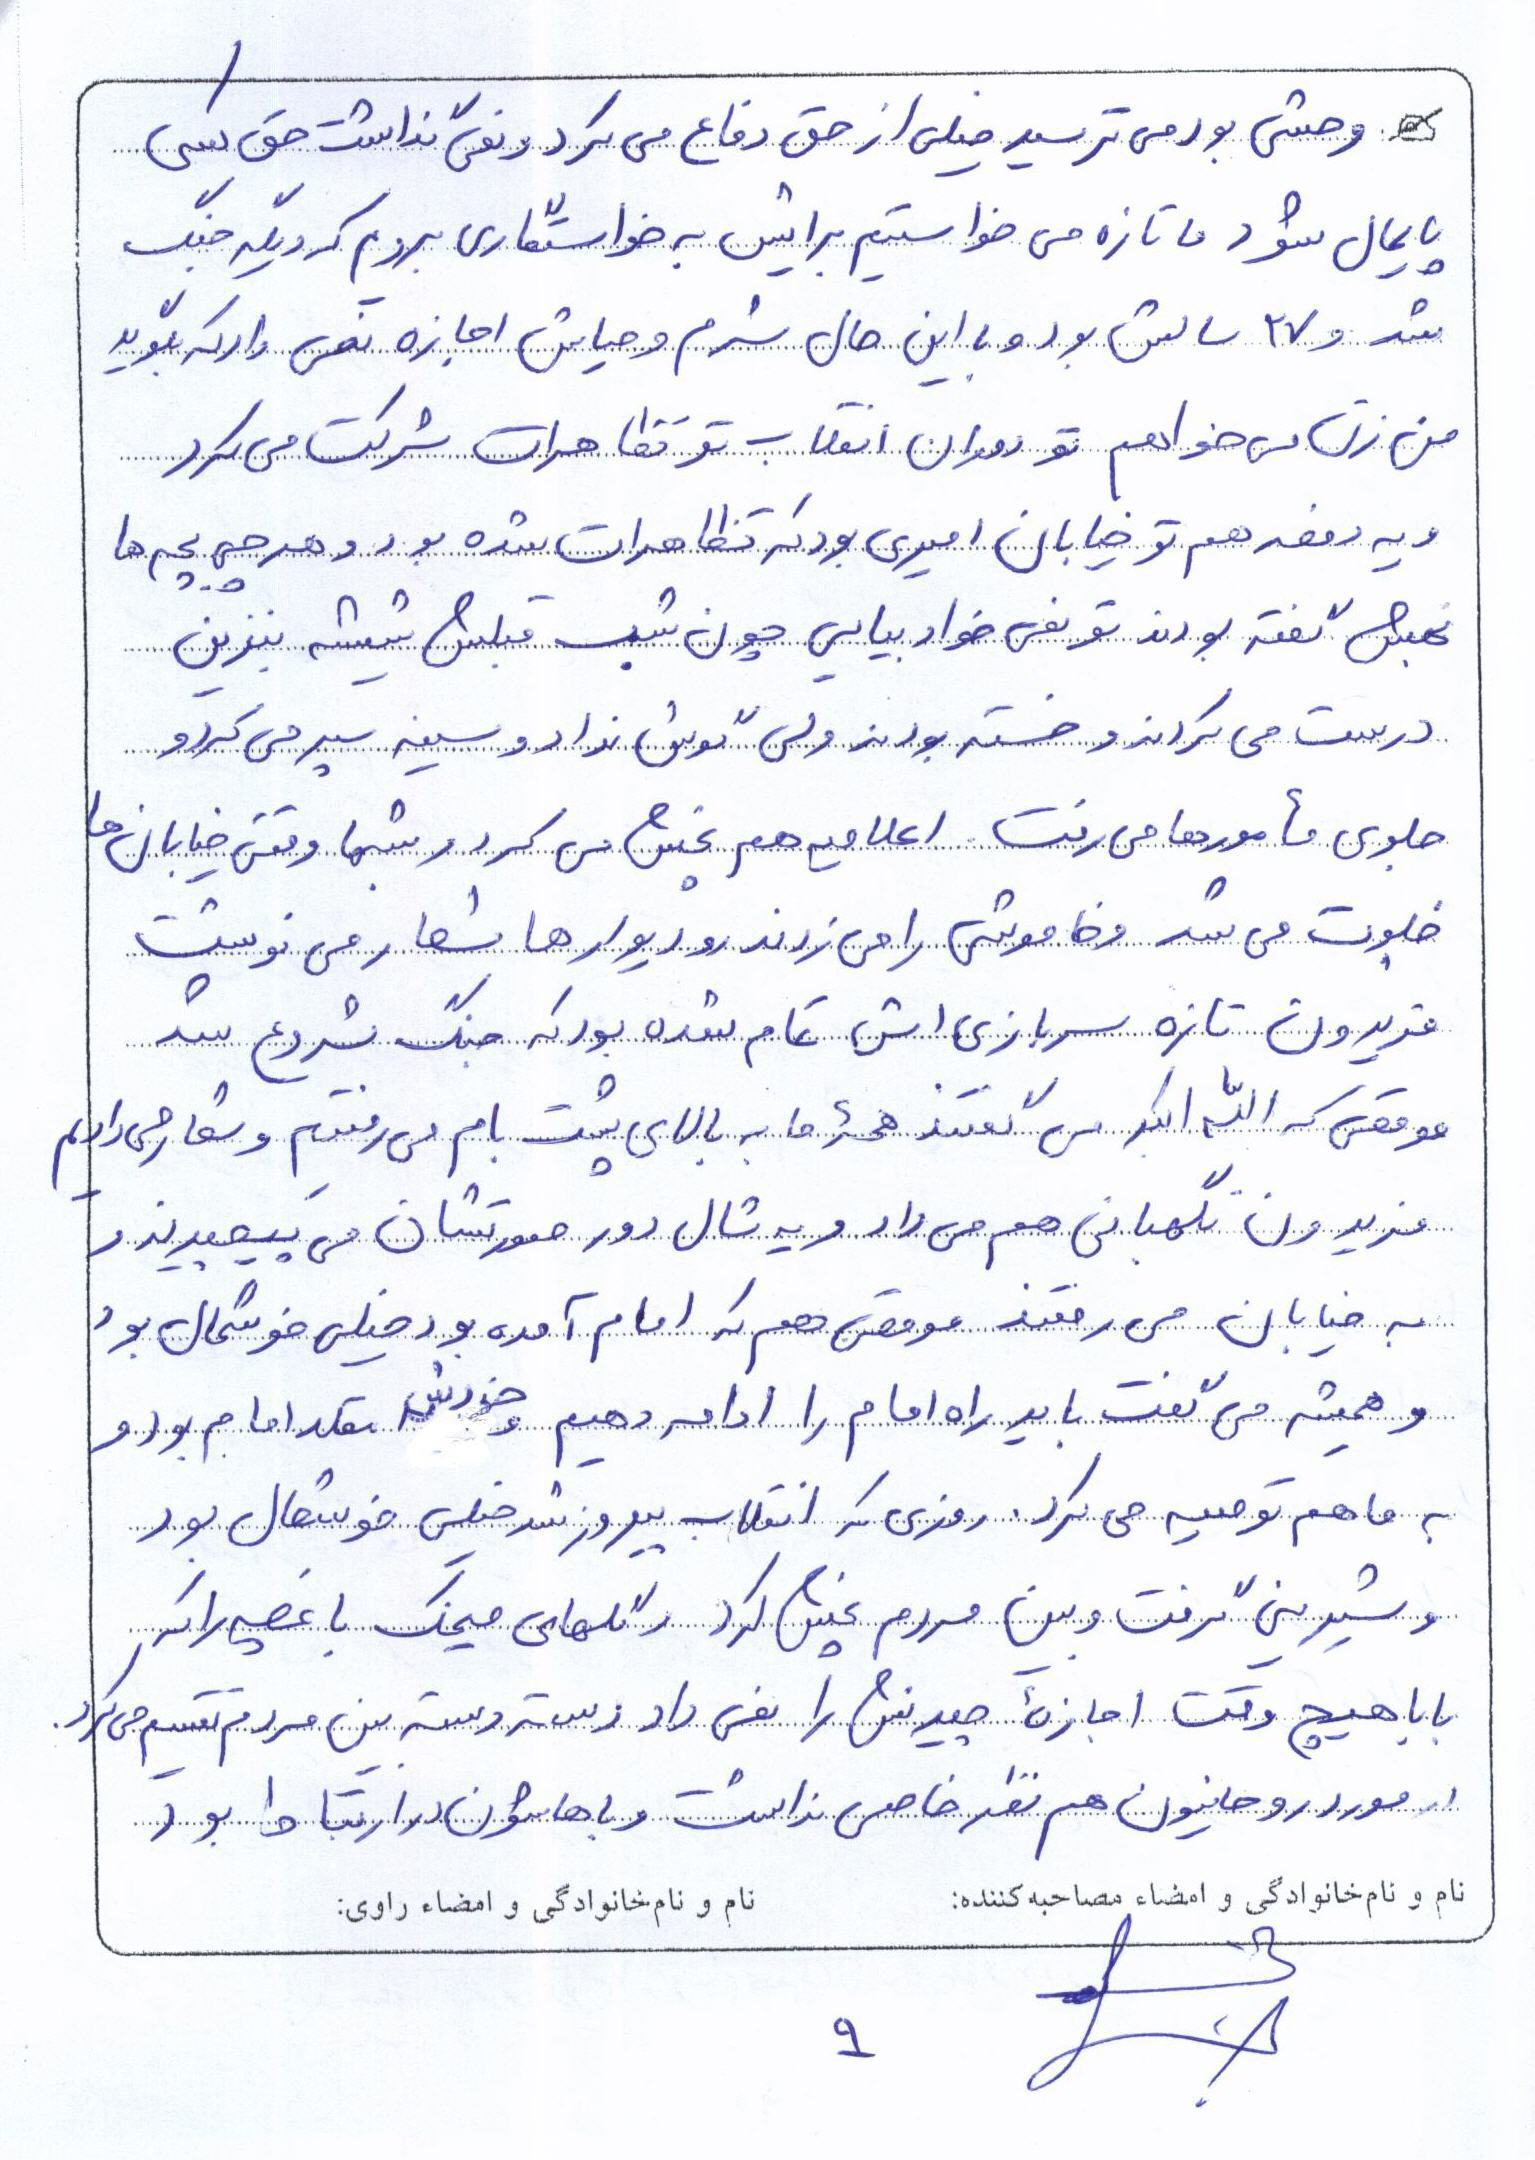 وحشی بود می ترسید خیلی از حق دفاع می کرد و نمی گذاشت حق کسی
پایمال شود ما تازه می خواستیم برایش به خواستگاری برویم که دیگه جنگ
شد و ۲۷ سالش بود و با این حال شرم و حیایش اجازه نمی داد که بگوید
من زن می خواهم تو دوران انقلاب تو تظاهرات شرکت می کرد
و یه دفعه هم تو خیابان امیری بود که تظاهرات شده بود و هر چی بچه ها
بهش گفته بودند تو نمی خواد بیایی چون شب قبلش شیشه بنزین
درست می کردند و خسته بودند ولی گوش نداد و سینه سپر می کرد و
جلوی مأمورها می رفت. اعلامیه هم پخش می کرد و شبها وقتی خیابان ها
خلوت می شد و خاموشی را می زدند رو دیوارها شعار می نوشت
فریدون تازه سربازی اش تمام شده بود که جنگ شروع شد
موقعی که الله اکبر می گفتند همۀ ما به بالای پشت بام می رفتیم و شعار می دادیم
فریدون نگهبانی هم می داد و یه شال دور صورتشان می پیچیدند و
به خیابان می رفتند موقعی هم که امام آمده بود خیلی خوشحال بود
و همیشه می گفت باید راه امام را ادامه دهیم و خودش مقلد امام بود و
به ما هم توصیه می کرد. روزی که انقلاب پیروز شد خیلی خوشحال بود
و شیرینی گرفت و بین مردم پخش کرد و گلهای میخک باغچه را که
بابا هیچ وقت اجازۀ چیدنش را نمی داد دسته دسته بین مردم تقسیم می کرد.
در مورد روحانیون هم نظر خاصی نداشت و باهاشون در ارتباط بود
نام و نام‌خانوادگی و امضاء مصاحبه‌کننده: نام و نام‌خانوادگی و امضاء راوی:
۹